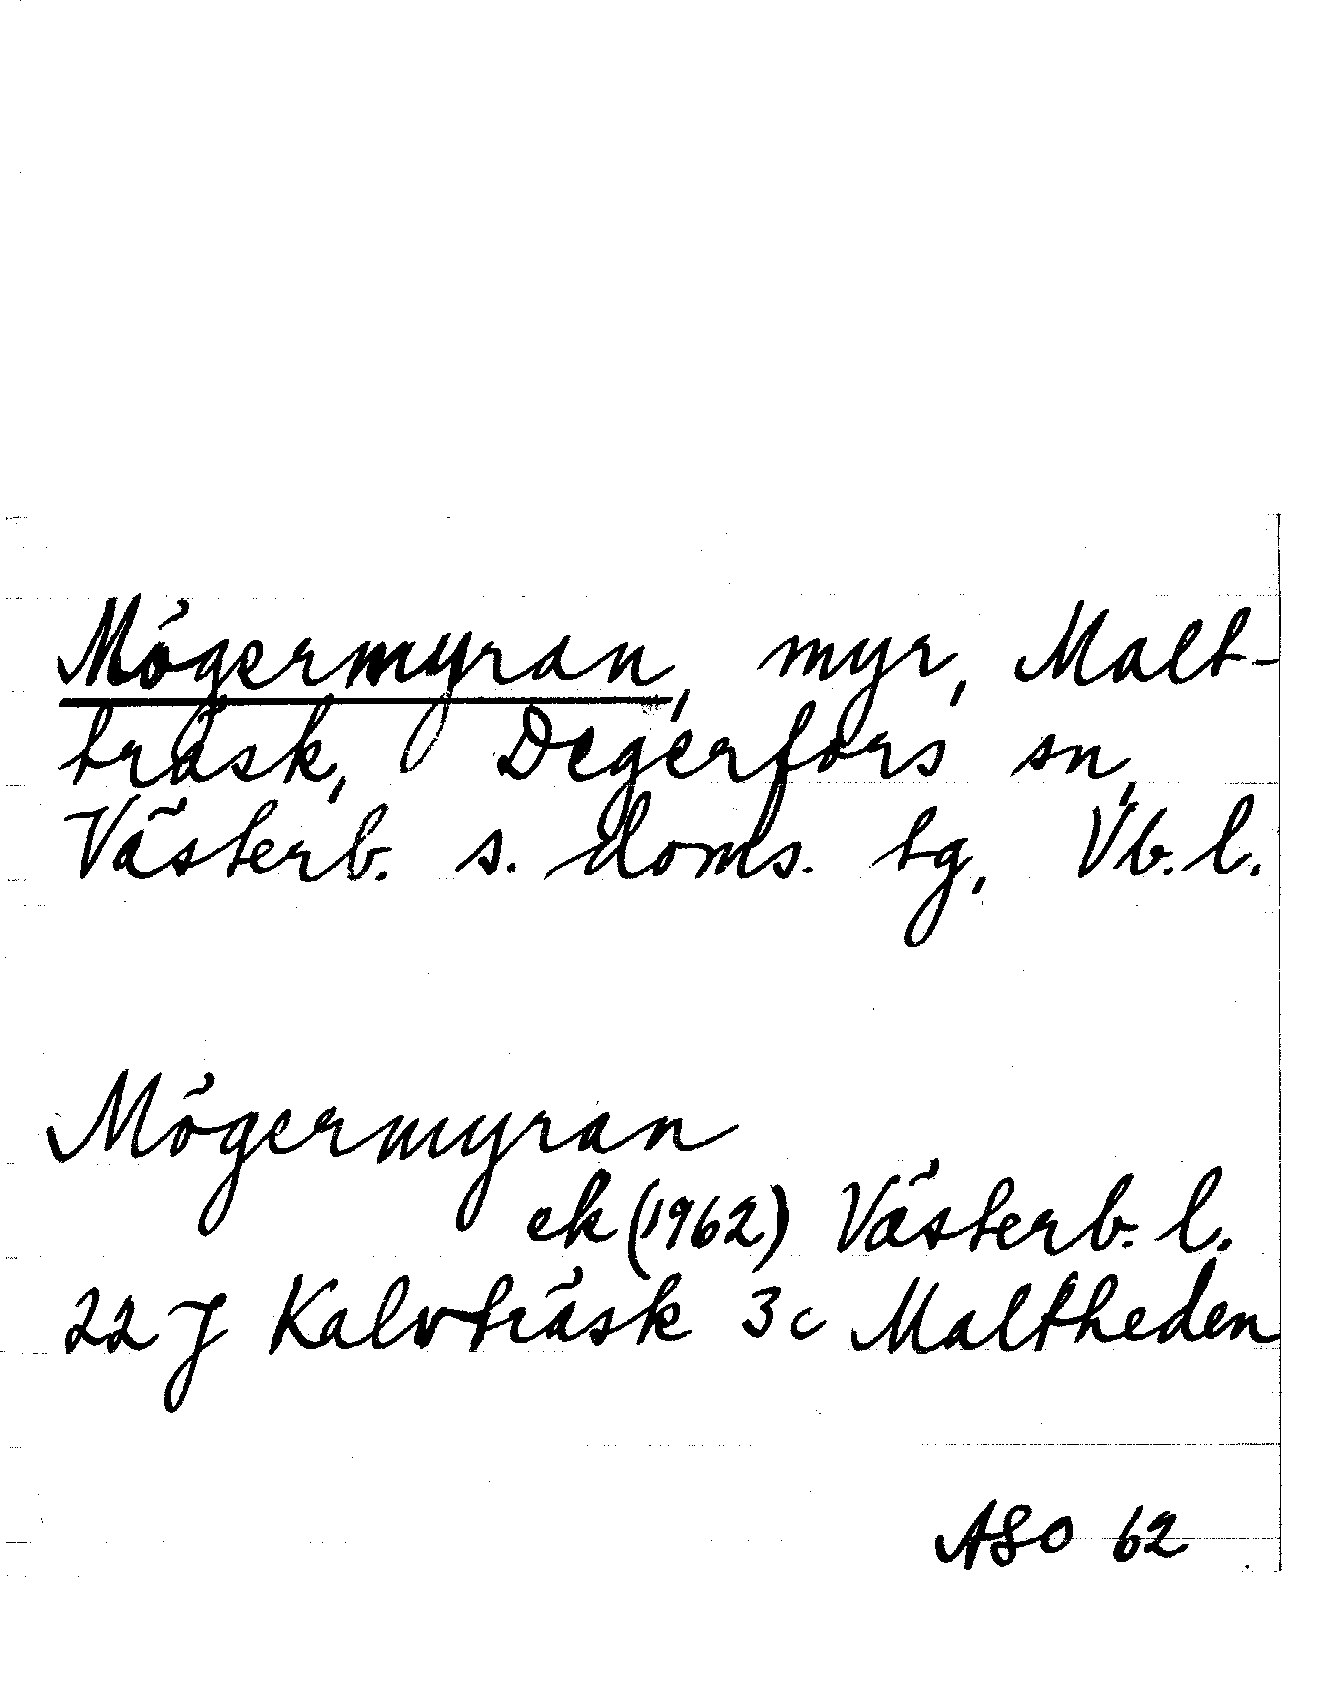 Mögermyran, myr, Malt-
träsk, Degerfors sn,
Västerb. s. doms. tg, Vb. l.
Mögermyran
ek (1962) Västerb. l.
22 J Kalvträsk 3c Maltheden
ASO 62